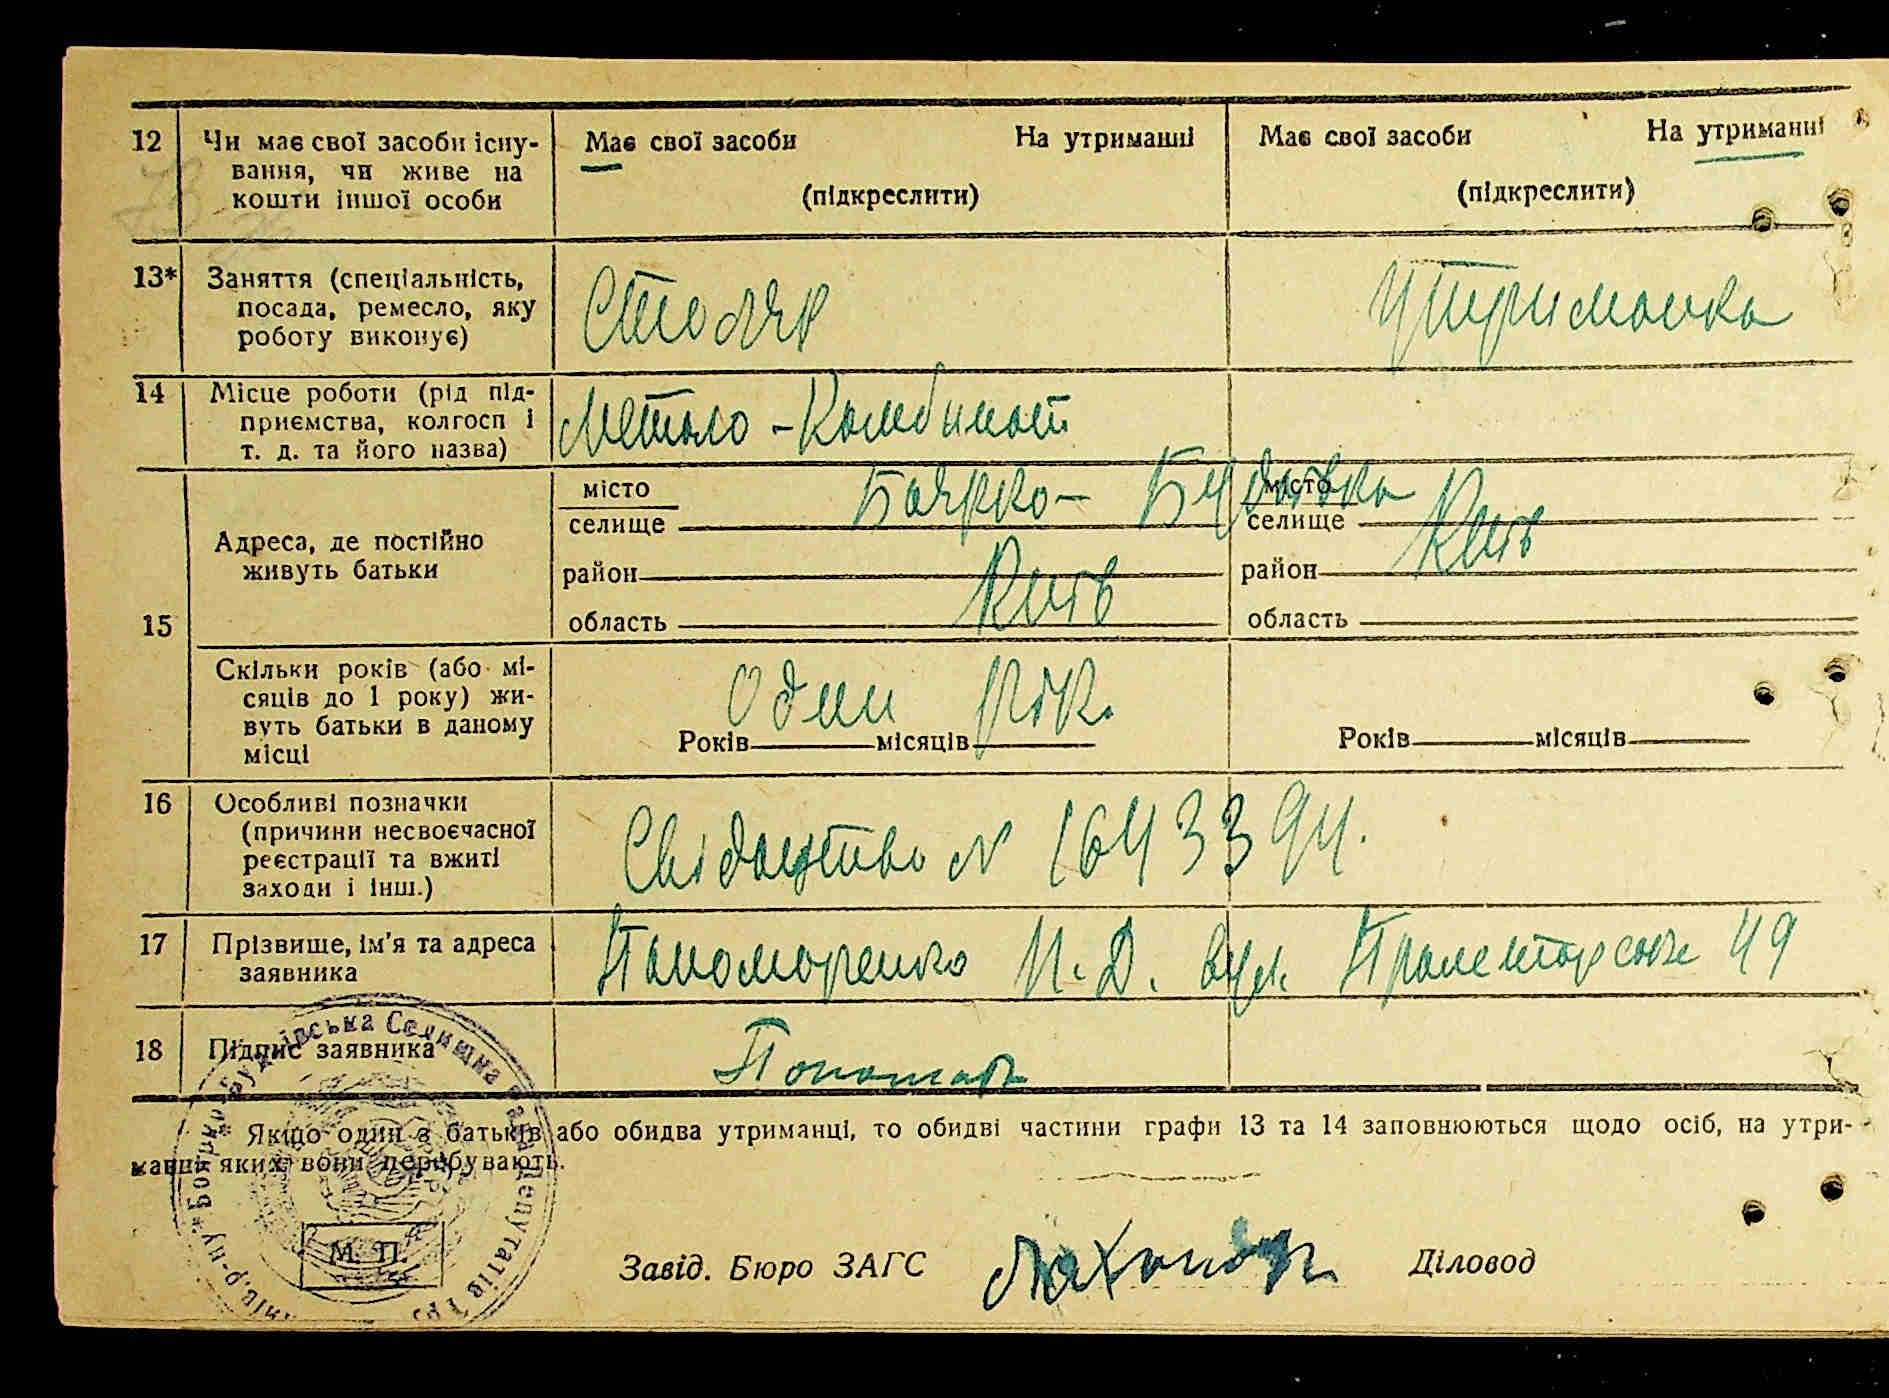 12 Чи має свої засоби існу- Має свої засоби На утриманні Має свої засоби На утриманні
вання, чи живе на
кошти іншої особи (підкреслити) (підкреслити)
13* Заняття (спеціальність,
посада, ремесло, яку Столяр Утриманка
роботу виконує)
14 Місце роботи (рід під-
приємства, колгосп і Метало-Комбинат
т. д. та його назва)
місто Боярко- Будаївка місто
селище селище Київ
Адреса, де постійно
живуть батьки район Київ район
15 область область
Скільки років (або мі-
сяців до 1 року) жи- Один рік.
вуть батьки в даному Років місяців Років місяців
місці
16 Особливі позначки
(причини несвоєчасної Свідоцтво N 1643394.
реєстрації та вжиті
заходи і інш.)
17 Прізвище, ім'я та адреса Пономоренко И. Д. вул. Пролетарська 49
заявника
18 Підпис заявника Понома
Якщо один з батьків або обидва утриманці, то обидві частини графи 13 та 14 заповнюються щодо осіб, на утри-
манні яких вони перебувають.
Боярко-Будаївська Селищна Рада Депутатів
М. П.
Завід. Бюро ЗАГС Діловод